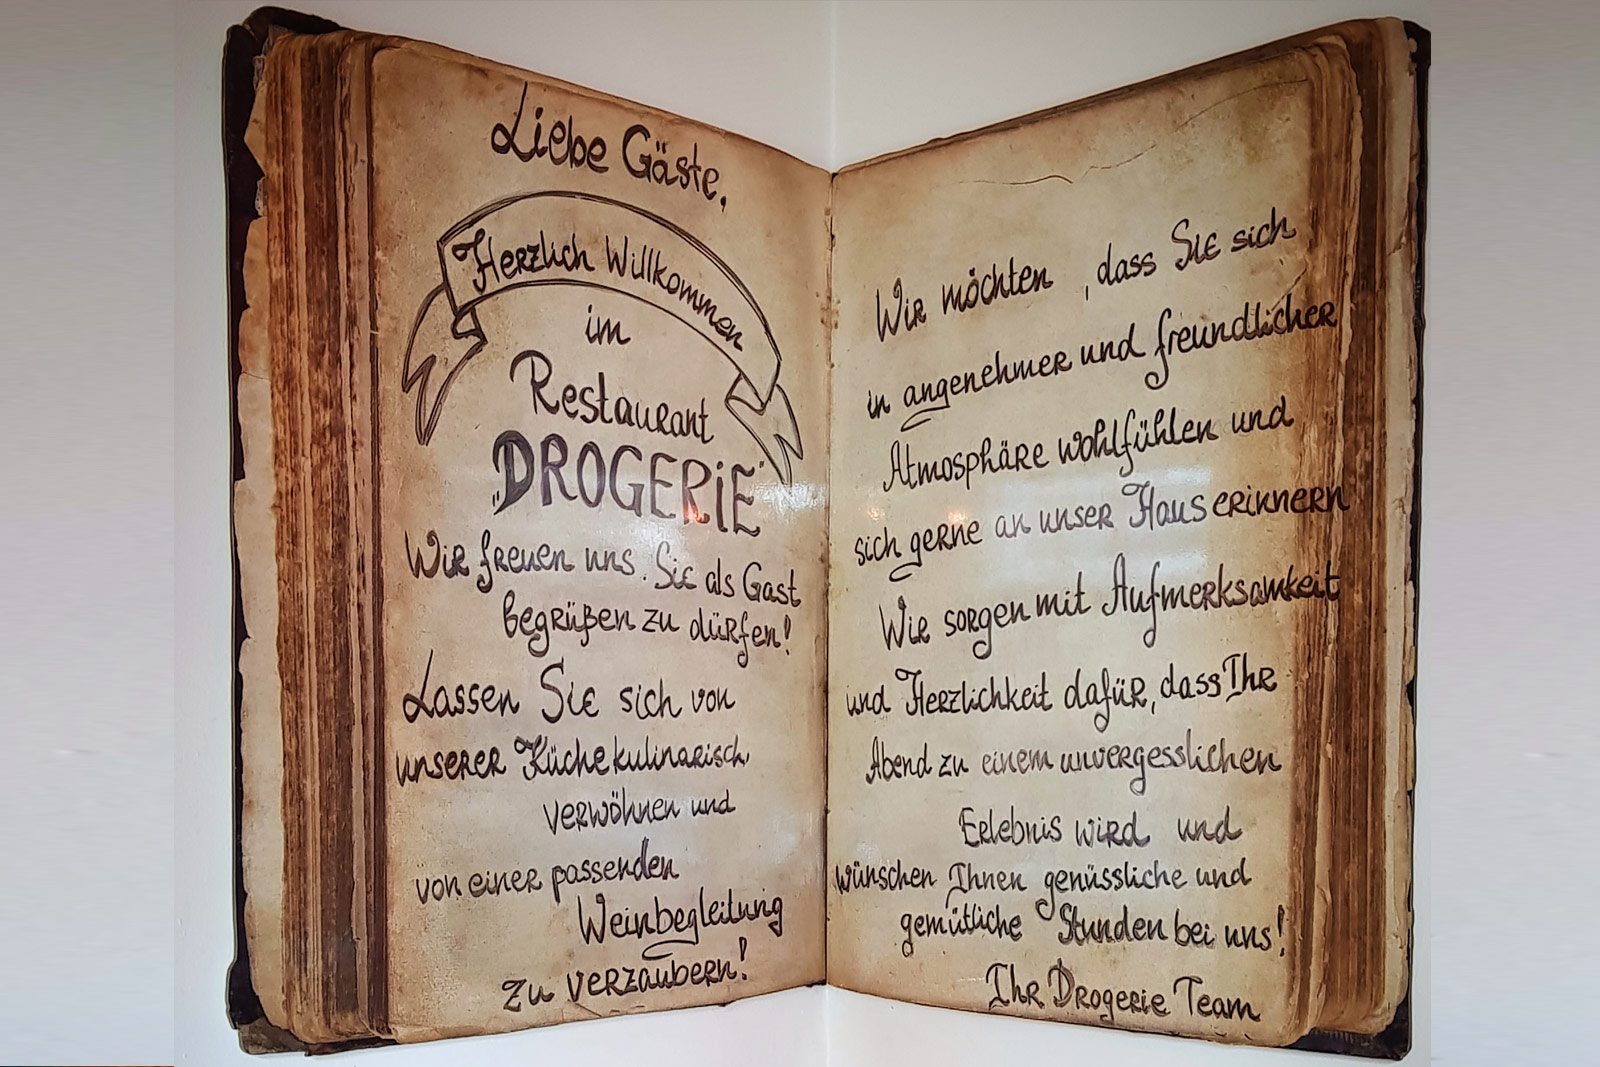 Liebe Gäste,
Herzlich Willkommen
im
Restaurant
„DROGERiE"
Wir freuen uns. Sie als Gast
begrüßen zu dürfen!
Lassen Sie sich von
unserer Küche kulinarisch,
verwöhnen und
von einer passenden
Weinbegleitung
zu verzaubern!
Wir möchten , dass Sie sich
in angenehmer und freundlicher
Atmosphäre wohlfühlen und
sich gerne an unser Haus erinnern
Wir sorgen mit Aufmerksamkeit
und Herzlichkeit dafür, dass Ihr
Abend zu einem unvergesslichen
Erlebnis wird und
wünschen Ihnen genüssliche und
gemütliche Stunden bei uns!
Ihr Drogerie Team